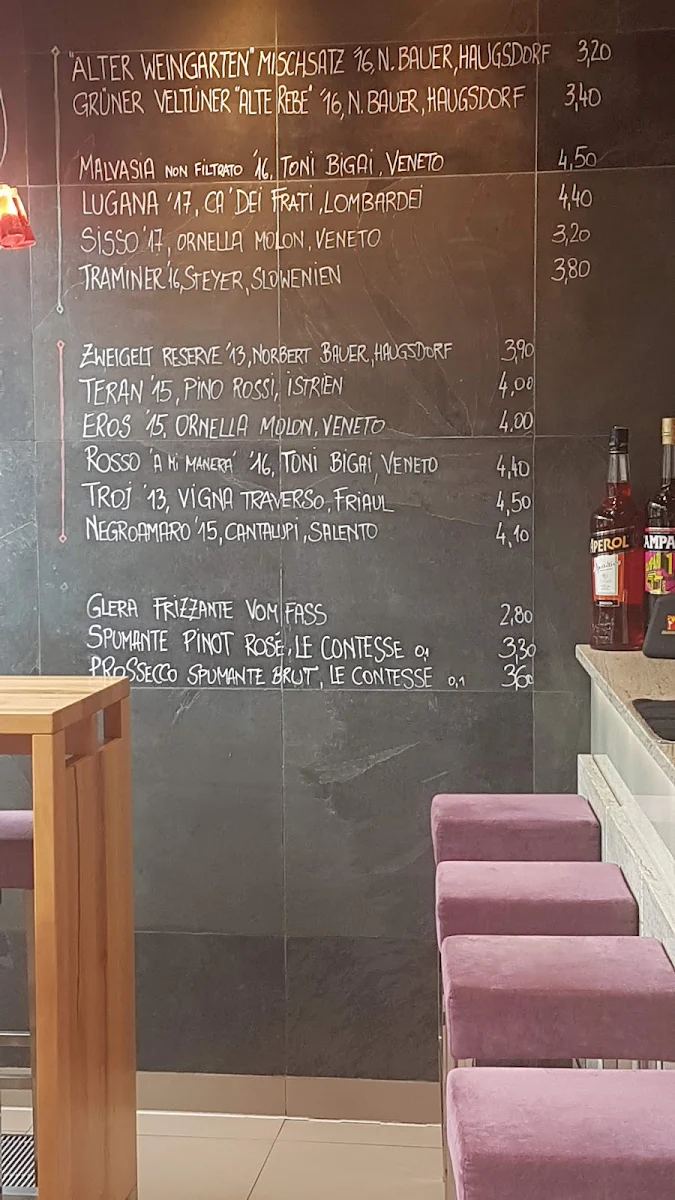 "ALTER WEINGARTEN" MISCHSATZ '16, N. BAUER, HAUGSDORF 3,20
GRÜNER VELTLINER "ALTE REBE" '16, N. BAUER, HAUGSDORF 3,40
MALVASIA NON FILTRATO '16, TONI BIGAI, VENETO 4,50
LUGANA '17, CA' DEI FRATI, LOMBARDEI 4,40
SISSO '17, ORNELLA MOLON, VENETO 3,20
TRAMINER '16, STEYER, SLOWENIEN 3,80
ZWEIGELT RESERVE '13, NORBERT BAUER, HAUGSDORF 3,90
TERAN '15, PINO ROSSI, ISTRIEN 4,00
EROS '15, ORNELLA MOLON, VENETO 4,00
ROSSO 'A MI MANERA' '16, TONI BIGAI, VENETO 4,40
TROJ '13, VIGNA TRAVERSO, FRIAUL 4,50
NEGROAMARO '15, CANTALUPI, SALENTO 4,10
GLERA FRIZZANTE VOM FASS 2,80
SPUMANTE PINOT ROSÉ, LE CONTESSE 0,1 3,30
PROSECCO SPUMANTE BRUT, LE CONTESSE 0,1 3,60
APEROL
AMPA